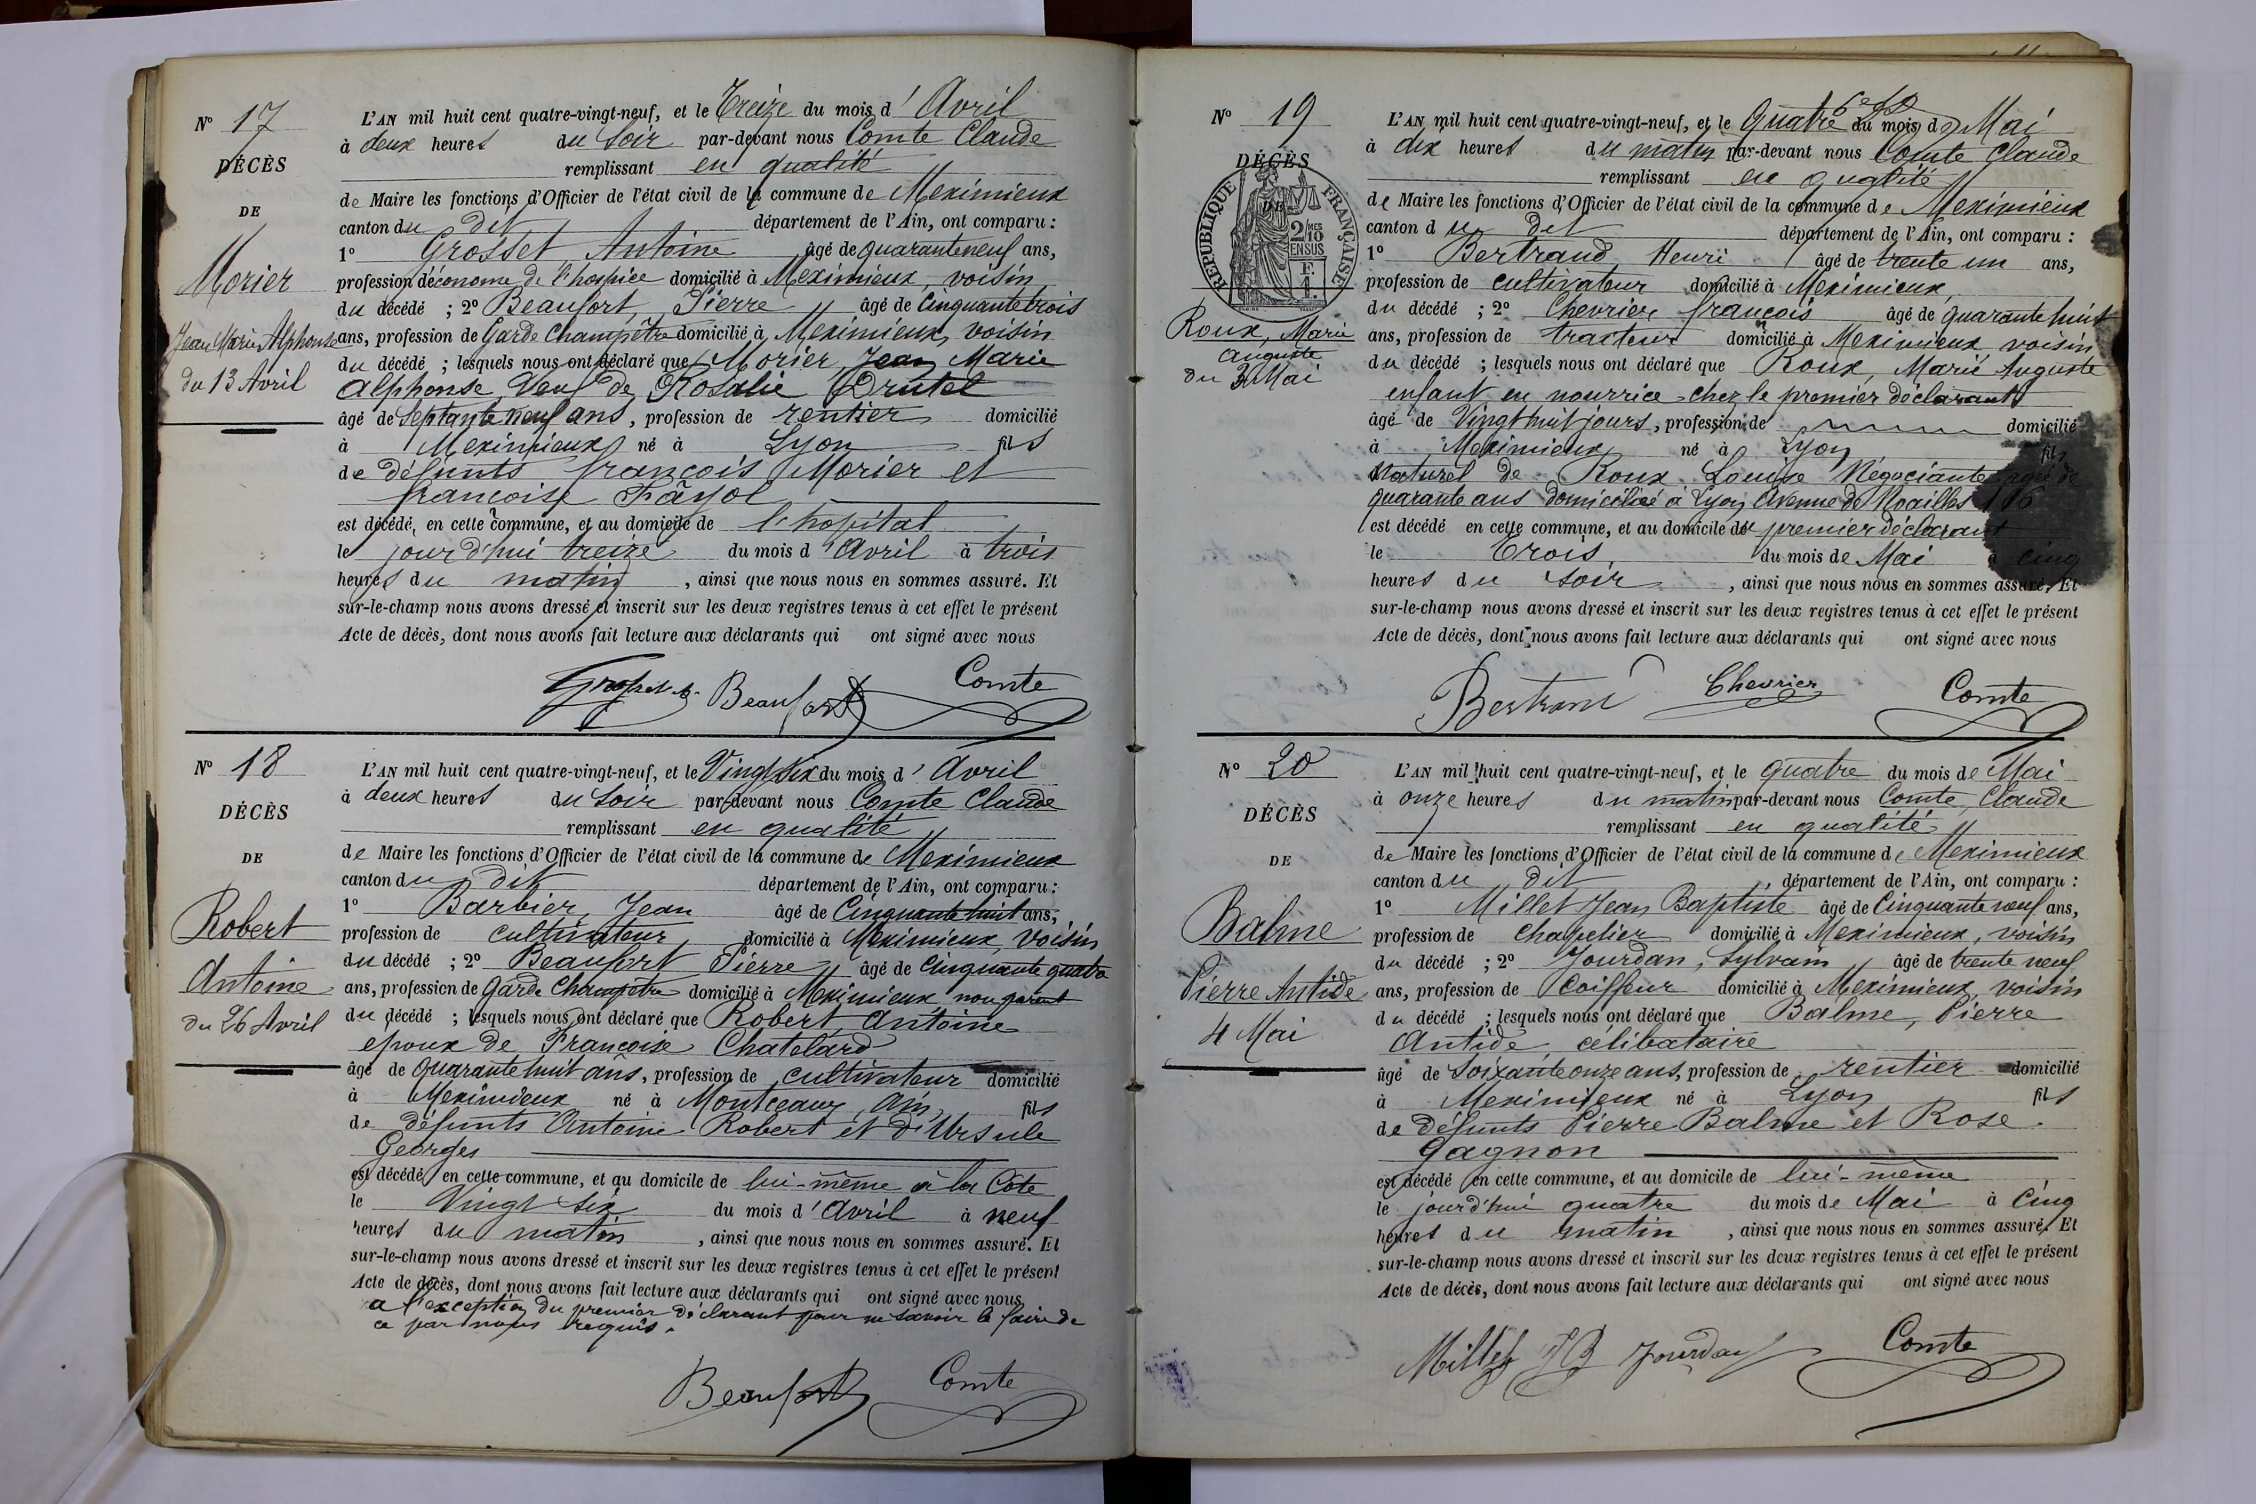 N° 17
DÉCÈS
DE
Morier
Jean Marie Alphonse
du 13 Avril
L'AN mil huit cent quatre-vingt-neuf, et le Treize du mois d'Avril
à deux heures du Soir par-devant nous Comte Claude
remplissant en qualité
de Maire les fonctions d'Officier de l'état civil de la commune de Meximieux
canton du dit département de l'Ain, ont comparu :
1° Grosset Antoine âgé de quarante neuf ans,
profession d'économe de l'hospice domicilié à Meximieux, voisin
du décédé ; 2° Beaufort, Pierre âgé de Cinquante trois
ans, profession de Garde Champêtre domicilié à Meximieux, voisin
du décédé ; lesquels nous ont déclaré que Morier Jean Marie
Alphonse, Veuf de Rosalie Drutel
âgé de Septante neuf ans, profession de rentier domicilié
à Meximieux né à Lyon fils
de défunts françois Morier et
françoise Fayol
est décédé, en cette commune, et au domicile de l'hopital
le jourd'hui treize du mois d'Avril à trois
heures du matin, ainsi que nous nous en sommes assuré. Et
sur-le-champ nous avons dressé et inscrit sur les deux registres tenus à cet effet le présent
Acte de décès, dont nous avons fait lecture aux déclarants qui ont signé avec nous
Grosset A. Beaufort Comte
N° 18
DÉCÈS
DE
Robert
Antoine
du 26 Avril
L'AN mil huit cent quatre-vingt-neuf, et le Vingt Six du mois d'Avril
à deux heures du Soir par-devant nous Comte Claude
remplissant en qualité
de Maire les fonctions d'Officier de l'état civil de la commune de Meximieux
canton du dit département de l'Ain, ont comparu :
1° Barbier, Jean âgé de Cinquante huit ans,
profession de cultivateur domicilié à Meximieux, voisin
du décédé ; 2° Beaufort Pierre âgé de Cinquante quatre
ans, profession de Garde Champêtre domicilié à Meximieux non parent
du décédé ; lesquels nous ont déclaré que Robert Antoine
époux de Françoise Chatelard
âgé de Quarante huit ans, profession de cultivateur domicilié
à Meximieux né à Montceaux, Ain, fils
de défunts Antoine Robert et d'Ursule
Georges
est décédé en cette commune, et au domicile de lui-même à la Côte
le Vingt Six du mois d'Avril à neuf
heures du matin, ainsi que nous nous en sommes assuré. Et
sur-le-champ nous avons dressé et inscrit sur les deux registres tenus à cet effet le présent
Acte de décès, dont nous avons fait lecture aux déclarants qui ont signé avec nous
a l'exception du premier déclarant pour ne savoir le faire de
ce par nous requis.
Beaufort Comte
N° 19
DÉCÈS
DE
RÉPUBLIQUE FRANÇAISE
2/10 MES
EN SUS
Roux, Marie
Auguste
du 3 Mai
L'AN mil huit cent quatre-vingt-neuf, et le Quatre du mois de Mai
à dix heures du matin par-devant nous Comte Claude
remplissant en qualité
de Maire les fonctions d'Officier de l'état civil de la commune de Meximieux
canton du dit département de l'Ain, ont comparu :
1° Bertrand Henri âgé de trente un ans,
profession de cultivateur domicilié à Meximieux,
du décédé ; 2° Chevrier, françois âgé de quarante huit
ans, profession de traiteur domicilié à Meximieux voisin
du décédé ; lesquels nous ont déclaré que Roux, Marie Auguste
enfant en nourrice chez le premier déclarant
âgé de Vingt huit jours, profession de domicilié
à Meximieux né à Lyon fils
Naturel de Roux Louise Négociante agée de
quarante ans domiciliée à Lyon Avenue de Noailles
est décédé en cette commune, et au domicile du premier déclarant
le Trois, du mois de Mai à cinq
heures du Soir, ainsi que nous nous en sommes assuré, Et
sur-le-champ nous avons dressé et inscrit sur les deux registres tenus à cet effet le présent
Acte de décès, dont nous avons fait lecture aux déclarants qui ont signé avec nous
Bertrand Chevrier Comte
N° 20
DÉCÈS
DE
Balme
Pierre Antide
4 Mai
L'AN mil huit cent quatre-vingt-neuf, et le quatre du mois de Mai
à onze heures du matin par-devant nous Comte, Claude
remplissant en qualité
de Maire les fonctions d'Officier de l'état civil de la commune de Meximieux
canton du dit département de l'Ain, ont comparu :
1° Millet Jean Baptiste âgé de Cinquante neuf ans,
profession de chapelier domicilié à Meximieux, voisin
du décédé ; 2° Jourdan, Sylvain âgé de trente neuf
ans, profession de Coiffeur domicilié à Meximieux voisin
du décédé ; lesquels nous ont déclaré que Balme, Pierre
Antide, célibataire
âgé de Soixante onze ans, profession de rentier domicilié
à Meximieux né à Lyon fils
de défunts Pierre Balme et Rose
Gagnon
est décédé en cette commune, et au domicile de lui-même
le jourd'hui quatre du mois de Mai à Cinq
heures du matin, ainsi que nous nous en sommes assuré. Et
sur-le-champ nous avons dressé et inscrit sur les deux registres tenus à cet effet le présent
Acte de décès, dont nous avons fait lecture aux déclarants qui ont signé avec nous
Millet JB Jourdan Comte